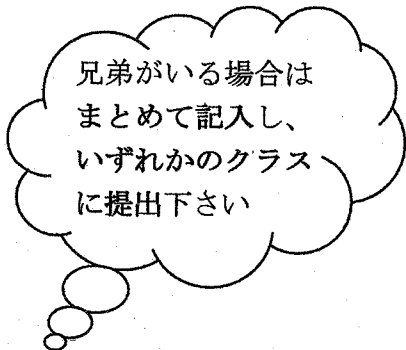 兄弟がいる場合は
まとめて記入し、
いずれかのクラス
に提出下さい